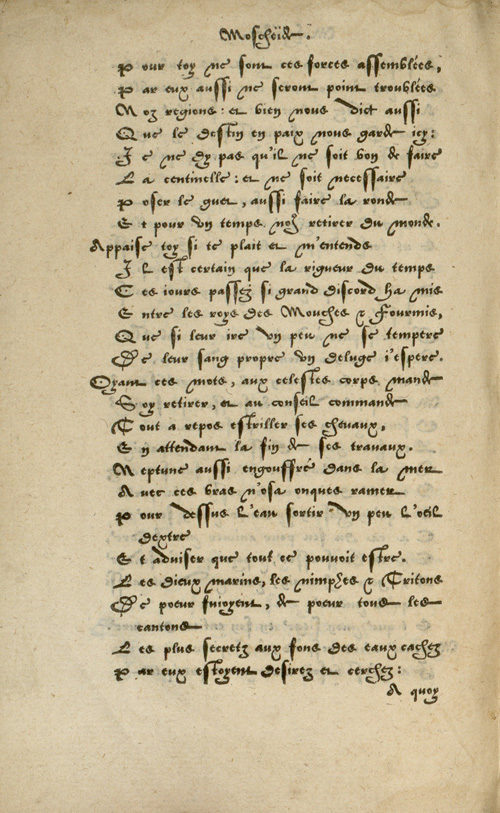 Moscheïde.
Pour toy ne sont ces forces assemblées,
Par eux aussi ne seront point troublées
Noz regions: et bien nous dict aussi
Que le destin en paix nous garde icy:
Je ne dy pas qu'il ne soit bon de faire
La centinelle: et ne soit necessaire
Poser le guet, aussi faire la ronde
Et pour vn temps no9 retirer du monde.
Appaise toy si te plait et m'entends
Il est certain que la rigueur du temps
Ces iours passez si grand discord ha mis
Entre les roys des Mouches & Fourmis,
Que si leur ire vn peu ne se tempere
De leur sang propre vn deluge i'espere.
Oyant ces mots, aux celestes corps mande
Soy retirer, et au conseil commande
Tout a repos estriller ses cheuaux,
En attendant la fin de ses trauaux.
Neptune aussi engouffré dans la mer
Auec ces bras n'osa onques ramer
Pour dessus l'eau sortir vn peu l'oeil
dextre
Et aduiser que tout ce pouuoit estre.
Les dieux marins, les nimphes & Tritons
De poeur fuioyent, & poeur tous les
cantons
Les plus secretz aux fons des eaux cachez
Par eux estoyent desirez et cerchez:
A quoy